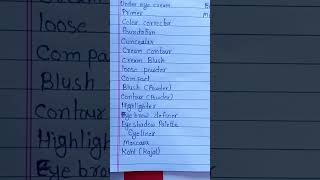 Under eye cream
Primer
Color corrector
Foundation
Concealer
Cream contour
Cream Blush
loose powder
Compact
Blush (Powder)
Contour (Powder)
Highlighter
Eyebrow definer
Eyeshadow Palette
Eyeliner
Mascara
Kohl (Kajal)